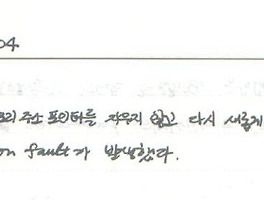 04
모리 주소 포인터를 지우지 않고 다시 새롭게
on fault가 발생했다.